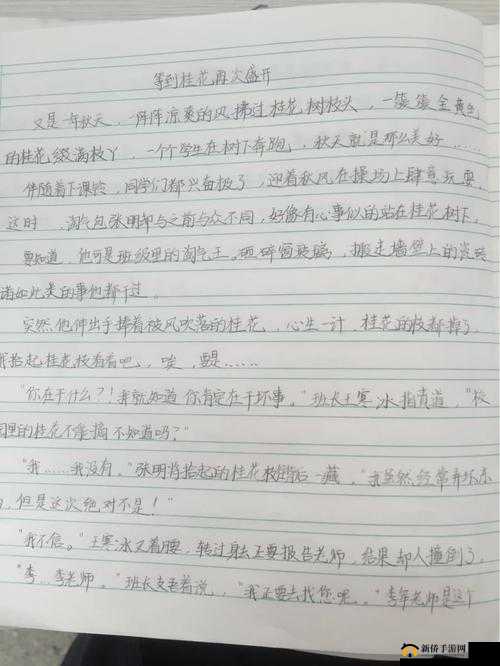 等到桂花再次盛开
又是一年秋天，一阵阵凉爽的风拂过桂花树枝头，一簇簇金黄色
的桂花缀满枝丫，一个个学生在树下奔跑，秋天就是那么美好……
伴随着下课铃，同学们都兴奋极了，迎着秋风在操场上肆意玩耍，
这时，淘气包张明却与之前与众不同，好像有心事似的站在桂花树下，
要知道，他可是班级里的淘气王，砸碎窗玻璃，搬走墙壁上的瓷砖
诸如此类的事他都干过。
突然他伸出手捧着被风吹落的桂花，心生一计，桂花的枝都掉了，
我拾起桂花枝看看吧，唉，要是……
"你在干什么？！我就知道你肯定在干坏事。"班长王寒冰指责道，"校
园里的桂花不能摘不知道吗？"
"我……我没有。"张明将拾起的桂花枝背后一藏，"我虽然经常弄坏东
，但是这次绝对不是！"
"我不信。"王寒冰叉着腰，转过身去正要报告老师，结果却人撞倒了，
"李…李老师。"班长支吾着说，"我正要去找您呢。"李年老师是这个
新侨手游网